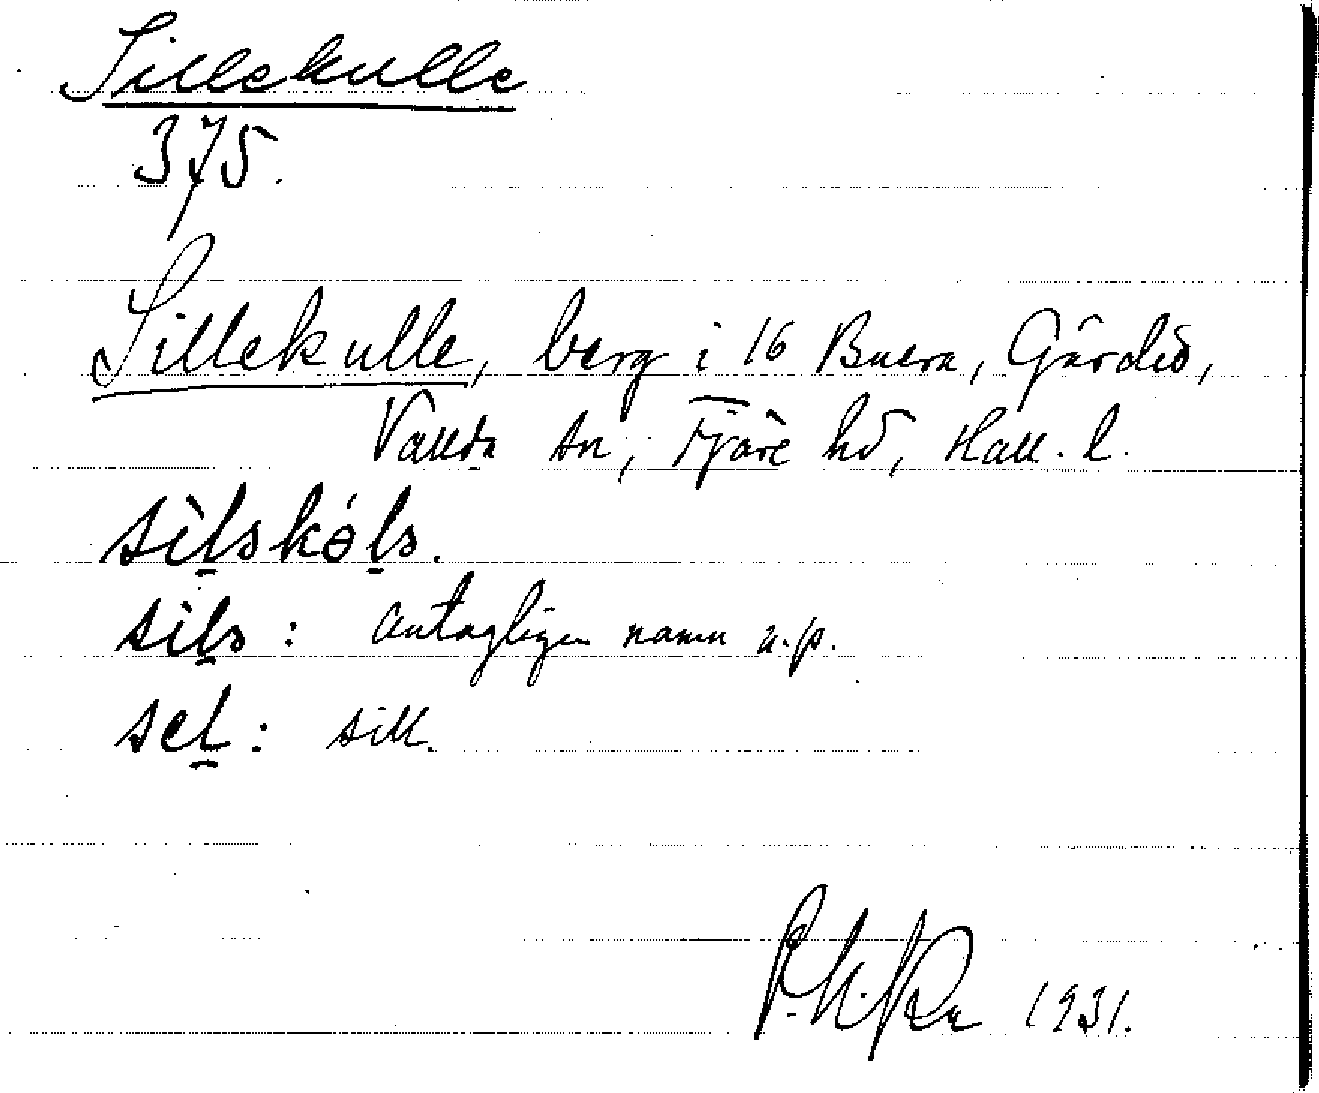 Sillekulle
375.
Sillekulle, berg i 16 Buera, Gårdið,
Vallda sn, Fjäre hd, Hall. l.
sìlskóls.
sìls: antagligen namn u./p.
sel: sill.
1931.